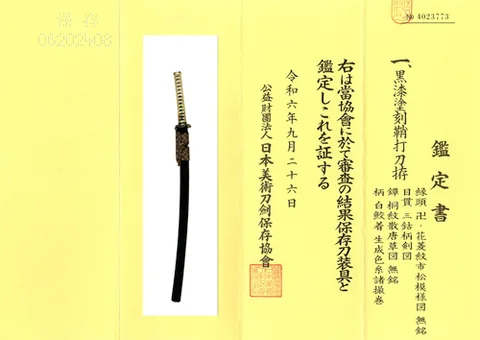 鑑定書
一、黒漆塗刻鞘打刀拵
縁頭 卍・花菱紋市松模様図 無銘
目貫 三鈷柄剣図
鐔 桐紋散唐草図 無銘
柄 白鮫着生成色糸諸撮巻
右は當協會に於て審査の結果保存刀装具と
鑑定しこれを証する
令和六年九月二十六日
公益財團法人 日本美術刀剣保存協會
№ 4023773
05202408